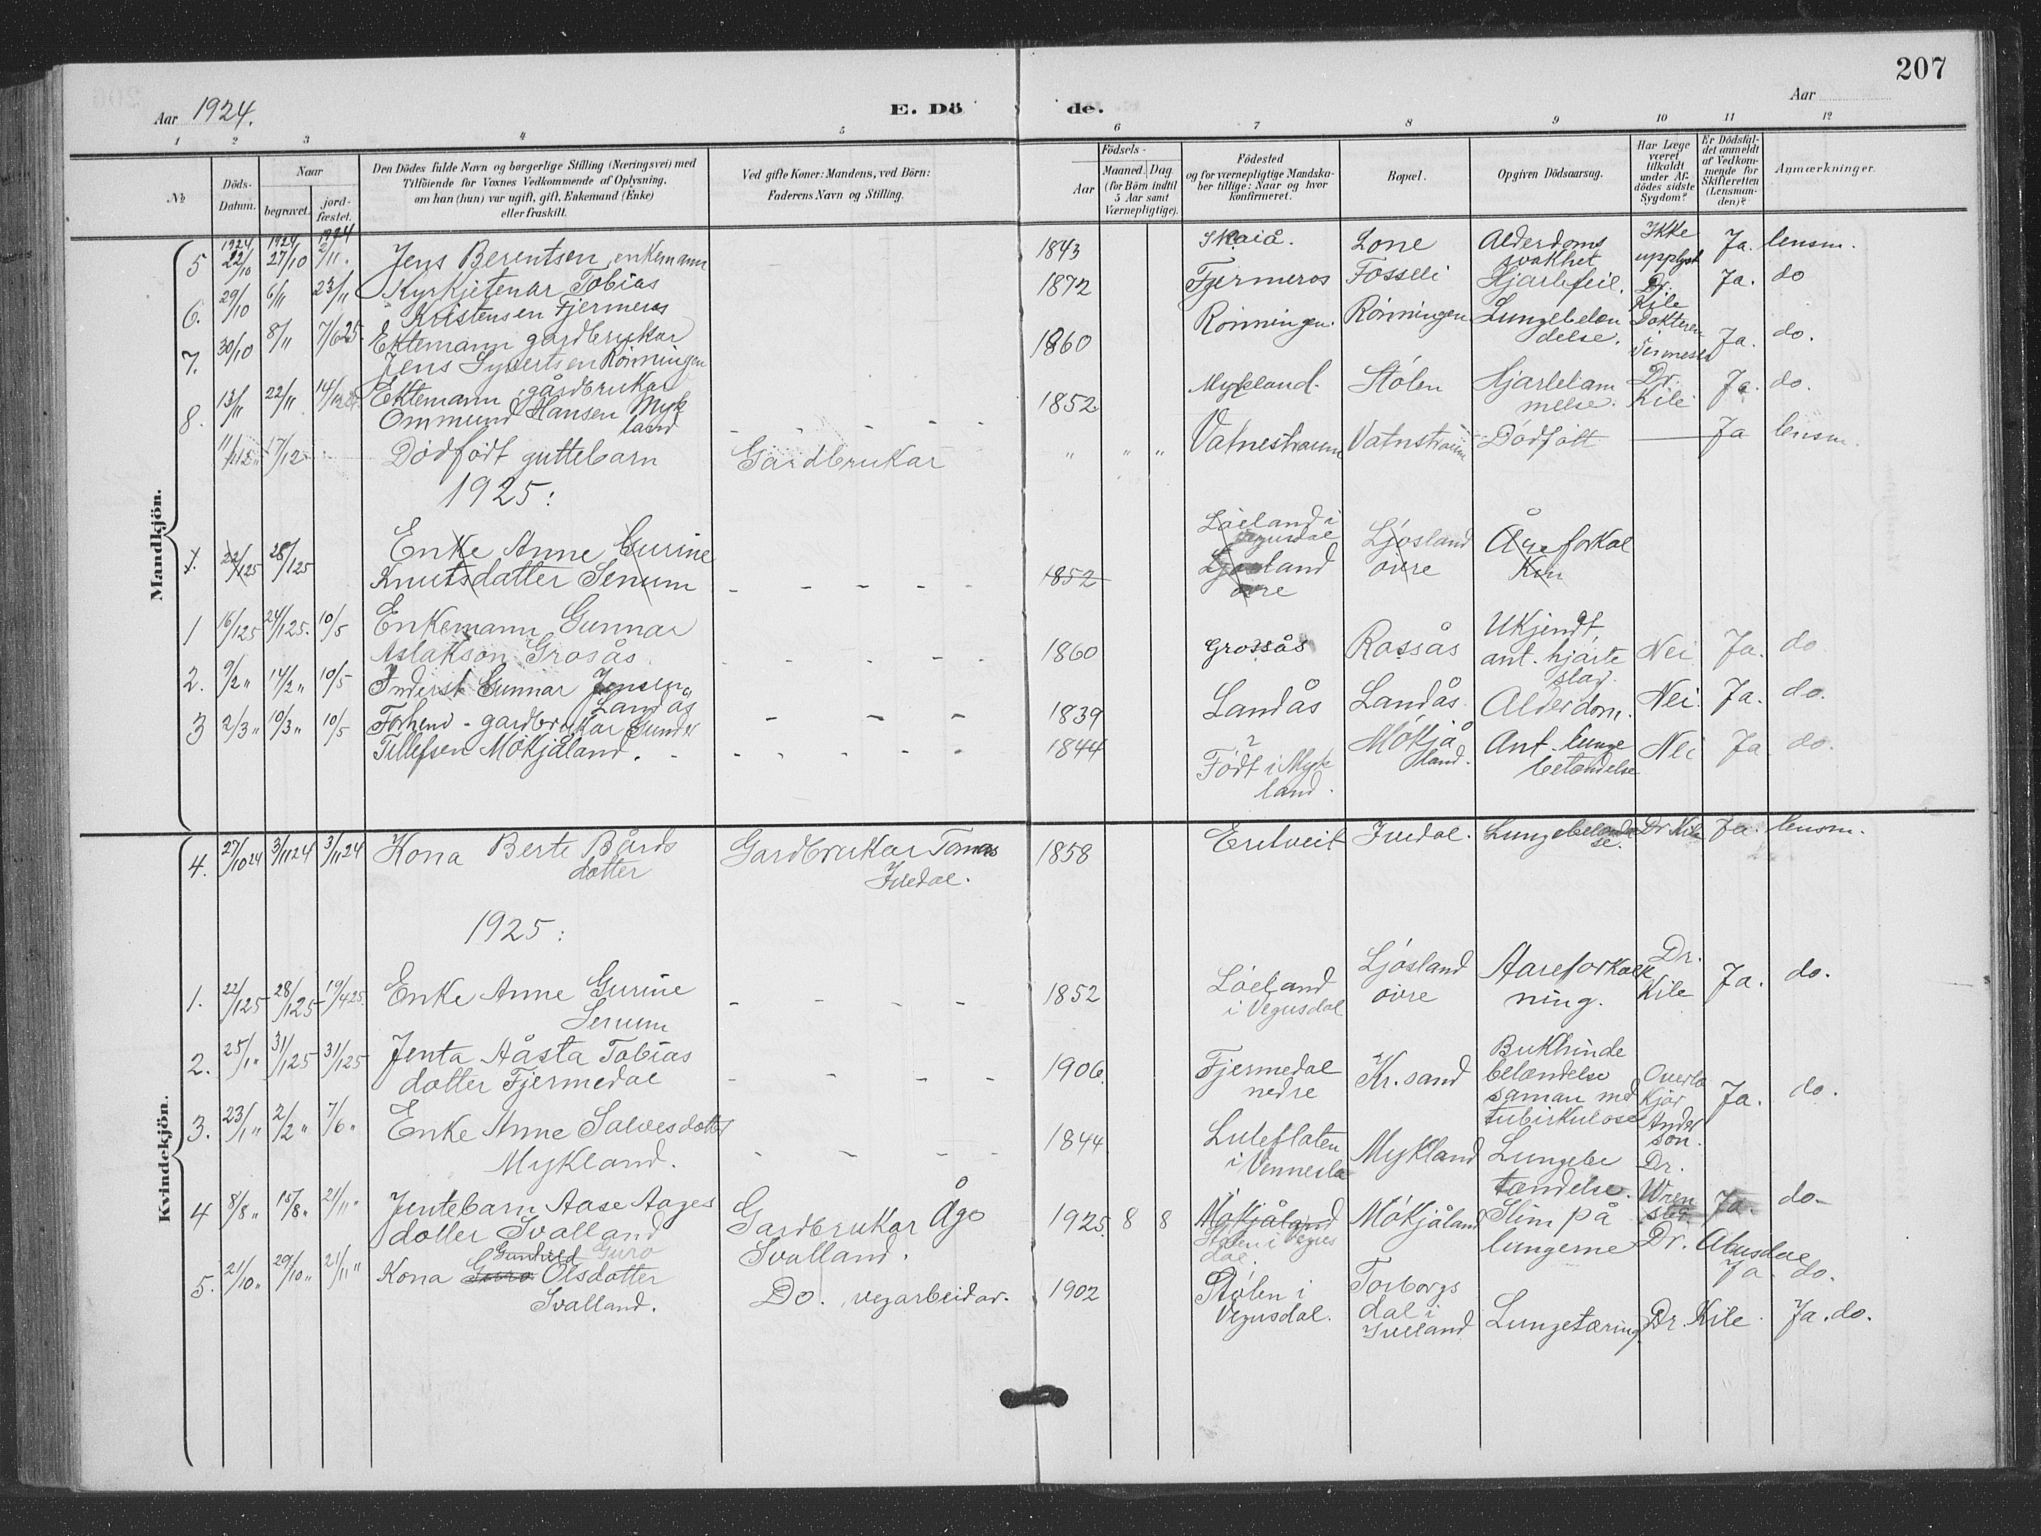 207
Aar 1924.
E. Dö de.
Aar
1 2 3 4 5 6 7 8 9 10 11 12
No
Döds-Datum.
Naar
begravet.
jordfæstet.
Den Dödes fulde Navn og borgerlige Stilling (Næringsvei) med
Tilföiende for Voxnes Vedkommende af Oplysning,
om han (hun) var ugift, gift, Enkemand (Enke)
eller fraskilt.
Ved gifte Koner: Mandens, ved Börn:
Faderens Navn og Stilling.
Födsels-
Aar
Maaned. Dag.
(for Börn indtil
5 Aar samt
Værnepligtige).
Födested
og for værnepligtige Mandska-
ber tillige: Naar og hvor
konfirmeret.
Bopæl.
Opgiven Dödsaarsag.
Har Læge
været
tilkaldt
under Af-
dödes sidste
Sygdom?
Er Dödsfal-
det anmeldt
af Vedkom-
mende for
Skifteretten
(Lensman-
den)?
Anmærkninger.
Mandkjön.
1924 1924 1924
5 22/10 27/10 2/11. Jens Berentsen, enkemann 1843 Skaiå. Lone Alderdoms svakhet Ikke upplyst Ja. lensm.
6. 29/10 6/11 23/11 Kyrkjetenar Tobias Kristensen Fjermeros 1872 Fjermeros Fosseli Hjartefeil. Dr. Kile Ja. do
7. 30/10 8/11 7/6 25 Ektemann gardbrukar Jens Syvertsen Rönningen 1860 Rönningen. Rönningen Lungebeten delse. Dokteren i Vennesla Ja. do.
8. 13/11 22/11 Ektemann, gårdbrukar Ommund Hansen Mykland 1852 Mykland. Stólen Hjartelam melse. Dr. Kile Ja. do.
17/12 Dödfödt guttebarn Gardbrukar " " " Vatnestraum Vatnstraum Dödfött Ja lensm.
1925:
1. 22/1 25 28/1 25 Enke Anne Gurine Knutsdatter Senum 1852 Löeland i Vegusdal Ljosland övre Ljósland övre Åreforkal
1 16/1 25 24/1 25. 10/5 Enkemann Gunnar Aslakson Grosås 1860 Grossås Rossås Ukjendt, ant. hjarte slag. Nei Ja. do
2. 9/2 " 14/2 " 10/5 Inderst Gunnar Jensen Landås 1839 Landås Landås. Alderdom. Nei. Ja. do.
3 2/3 " 10/3 " 10/5 Forhenv. gardbrukar Gunder Tellefsen Mókjåland. 1844 ? Födt i Mykland. Mókjåland. Ant. lunge betændelse Nei Ja do.
Kvindekjön.
4. 27/10 24 3/11 24 3/11 24 Kona Berte Bårds dotter Gardbrukar Tomas Ivedal. 1858 Eretveit Ivedal. Lungebetændelse. Dr Kile Ja. lensm.
1925:
1. 22/1 25 28/1 25 19/4 25 Enke Anne Gurine Senum 1852 Löeland i Vegusdal Ljósland óvre Aareforkalk ning. Dr. Kile Ja. do.
2. 25/1 " 31/1 25 31/1 25 Jenta Aåsta Tobias dotter Fjermedal 1906. Fjermedal nedre Kr. sand Bukhinde betændelse saman med tubirkulose Overlækjar Anderson. Ja. do.
3. 23/1 " 2/2 " 7/6 " Enke Anne Salvesdotter Mykland. 1844 Luteflaten i Vennesla Mykland Lungebe tændelse. Dr. Ja. do-
4 8/8 " 15/8 " 21/11 " Jentebarn Aase Aages dotter Svalland Gardbrukar Ågo Svalland. 1925 8 8 Mókjåland Stólen i Vegus dal. Mókjåland Slim på lungerne Dr. Abusdal Ja. do.
5. 21/10 " 29/10 " 21/11 " Kona Guro Gunhild Guro Olsdotter Svalland. Do. vegarbeidar. 1902 Stólen i Vegusdal. Torborgs dal i Iveland Lungetæring Dr. Kile. Ja. do.